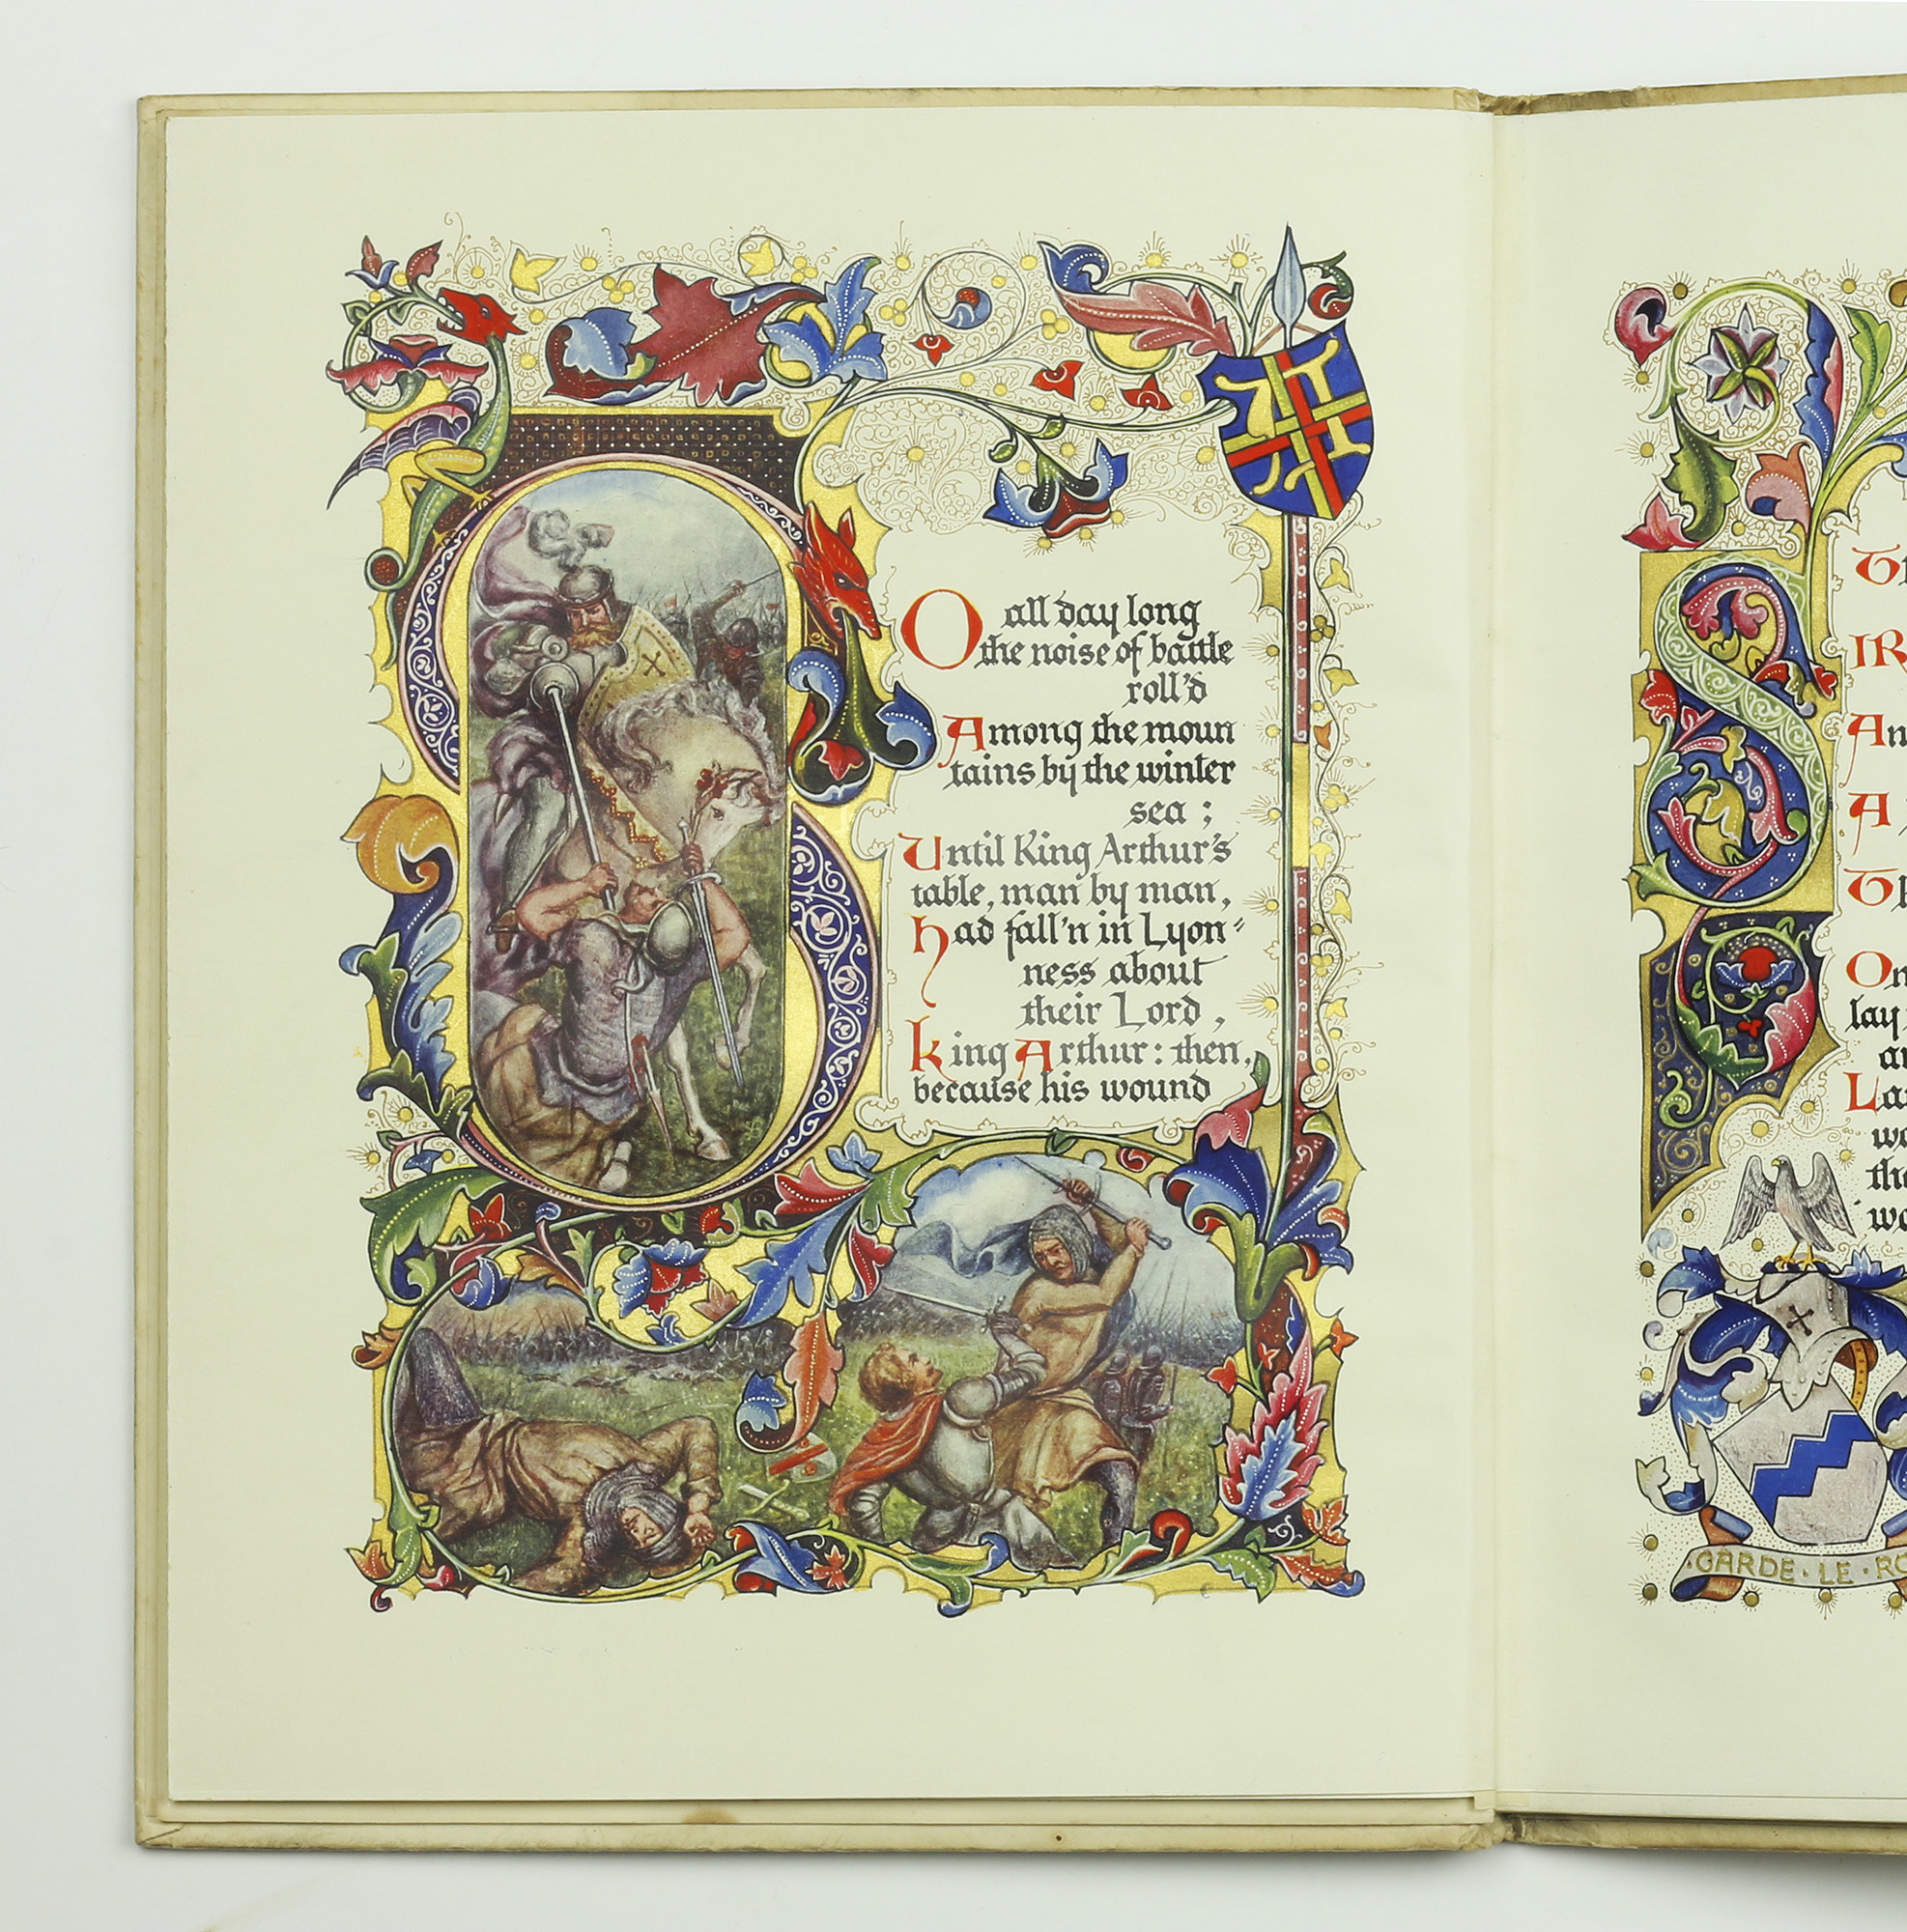 SO all day long
the noise of battle
roll'd
Among the moun
tains by the winter
sea ;
Until King Arthur's
table, man by man,
had fall'n in Lyon⸗
ness about
their Lord,
king Arthur : then,
because his wound
SIR
A
lay
GARDE · LE ·